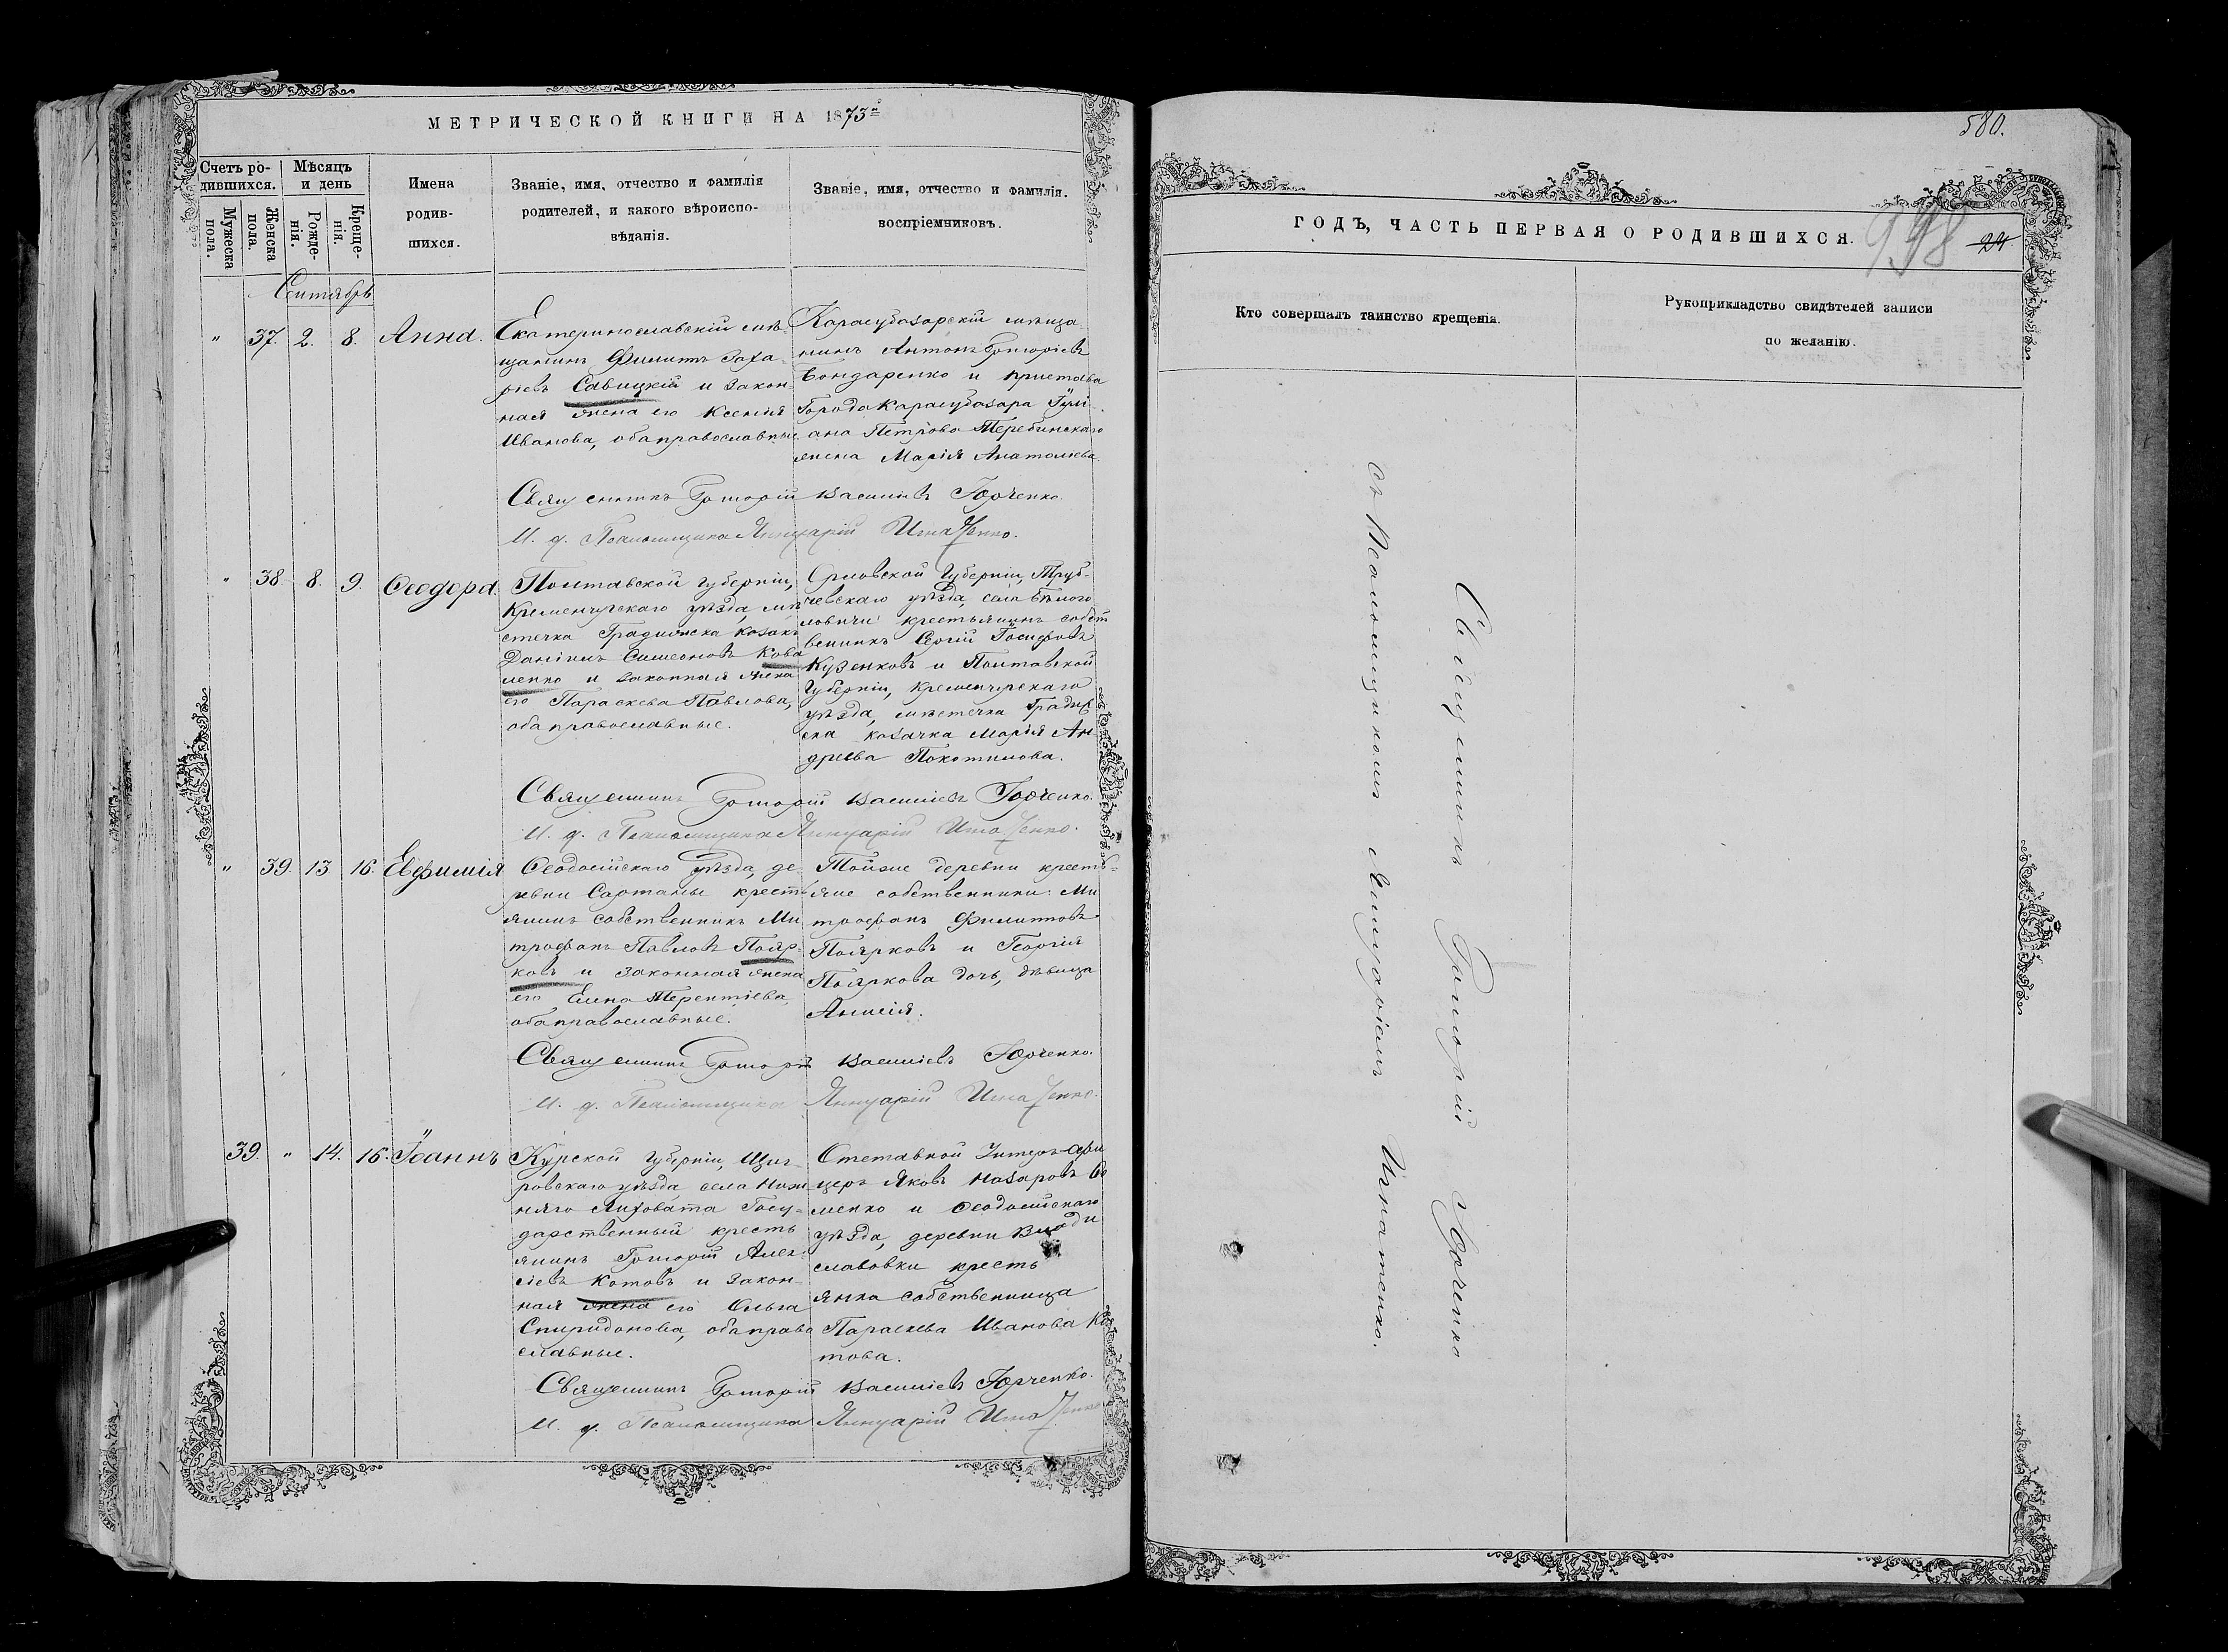 МЕТРИЧЕСКОЙ КНИГИ НА 1873й
Счетъ ро-
дившихся.
Мѣсяцъ
и день
Мужеска
пола.
Женска
пола.
Рожде-
нія.
Креще-
нія.
Имена
родив-
шихся.
Званіе, имя, отчество и фамилія
родителей, и какого вѣроиспо-
вѣданія.
Званіе, имя, отчество и фамилія.
воспріемниковъ.
Сентябрь
" 37. 2. 8. Анна.
Екатеринославскій мѣ-
щанинъ Филиппъ Заха-
ріевъ Савицкій и закон-
ная жена его Ксенія
Иванова, оба православные.
Карасубазарскій мѣща-
нинъ Антонъ Григоріевъ
Бондаренко и пристава
Города Карасубазара Іулі-
ана Петрова Теребинскаго
жена Марія Анатоліева.
Священникъ Григорій Василіевъ Юрченко.
И. д. Псаломщика Яннуарій Игнатенко.
" 38. 8. 9. Ѳеодора
Полтавской губерніи,
Кременчугскаго уѣзда, мѣ
стечка Градижска козакъ
Даніилъ Симеоновъ Кова
ленко и законная жена
его Параскева Павлова,
оба православные.
Орловской Губерніи, Труб-
чевскаго уѣзда, села Бѣлого
ловичи крестьянинъ собст
венникъ Сергій Іосифовъ
Кузенковъ и Полтавской
Губерніи, Кременчугскаго
уѣзда, мѣстечка Градиж
ска козачка Марія Ан
дреева Покотилова.
Священникъ Григорій Василіевъ Юрченко.
И. д. Псаломщика Яннуарій Игнатенко.
" 39. 13 16. Евфимія
Ѳеодосійскаго уѣзда, де-
ревни Сартаны крестъ
янинъ собственникъ Ми
трофанъ Павловъ Пояр-
ковъ и законная жена
его Елена Терентіева,
оба православные.
Тойже деревни крестъ-
яне собственники: Ми
трофанъ Филипповъ
Поярковъ и Георгія
Пояркова дочь, дѣвица
Анисія.
Священникъ Григорій Василіевъ Юрченко.
И. д. Псаломщика Яннуарій Игнатенко.
39. " 14. 16. Іоаннъ
Курской Губерніи, Щиг-
ровскаго уѣзда села Ниж
няго Госу-
дарственный кресть
янинъ Григорій Алек-
сіевъ Котовъ и закон-
ная жена его Ольга
Спиридонова, оба право
славные.
Отставной Унтеръ-офи
церъ Яковъ Назаровъ
менко и Ѳеодосійскаго
уѣзда, деревни Влади
славовки кресть
янка собственница
Параскева Иванова Ко
това.
Священникъ Григорій Василіевъ Юрченко.
И. д. Псаломщика Яннуарій Игнатенко
580.
ГОДЪ, ЧАСТЬ ПЕРВАЯ О РОДИВШИХСЯ.
998
24
Кто совершалъ таинство крещенія.
Рукоприкладство свидѣтелей записи
по желанію.
Священникъ Григорій Юрченко
съ Псаломщикомъ Аннуаріемъ Игнатенко.